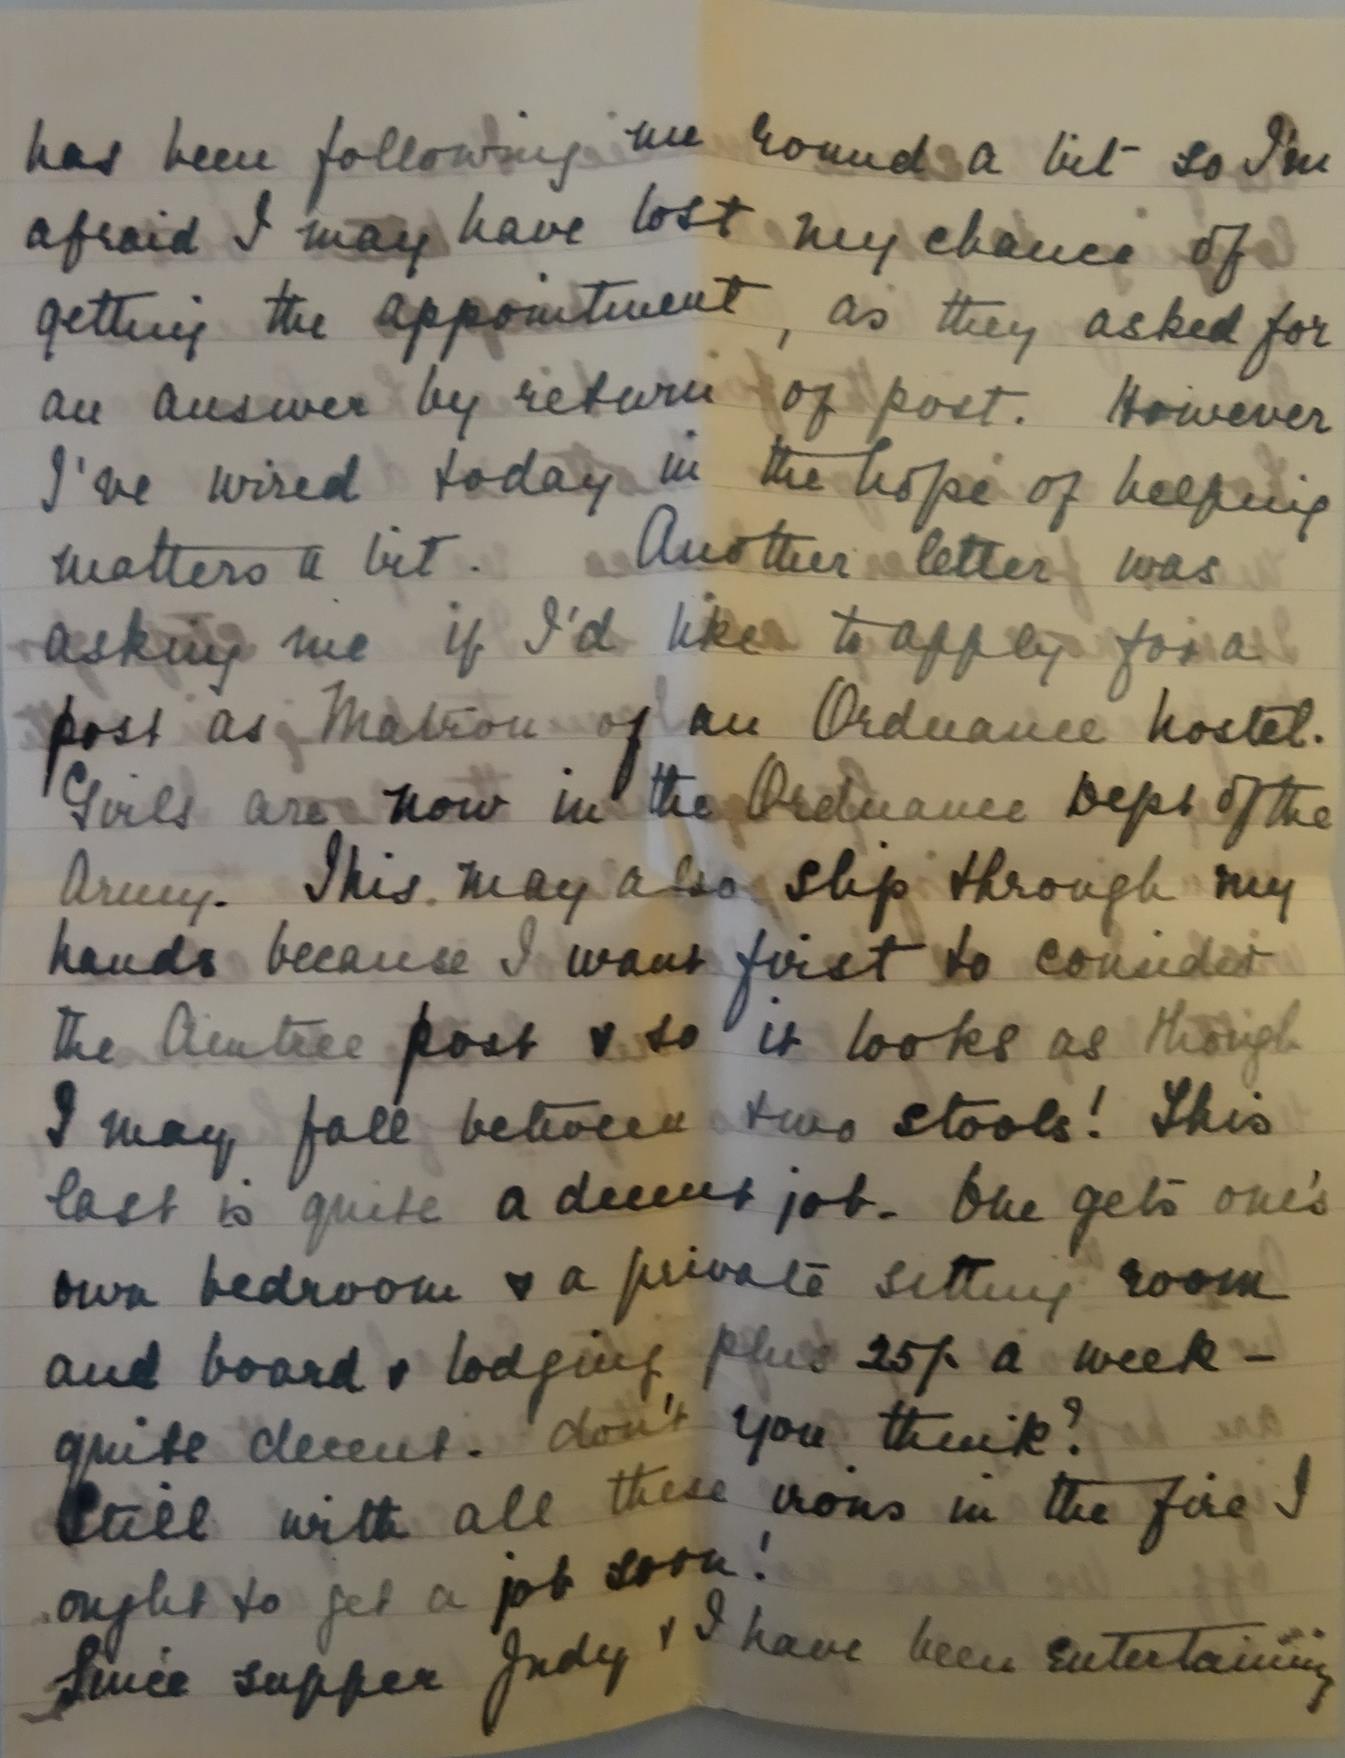 has been following me round a bit so I'm
afraid I may have lost my chance of
getting the appointment, as they asked for
an answer by return of post. However
I've wired today in the hope of helping
matters a bit. Another letter was
asking me if I'd like to apply for a
post as Matron of an Ordnance hostel.
Girls are now in the Ordnance Dept of the
Army. This may also slip through my
hands because I want first to consider
the Aintree post & so it looks as though
I may fall between two stools! This
last is quite a decent job. One gets one's
own bedroom & a private sitting room
and board & lodging plus 25/- a week -
quite decent. don't you think?
Still with all these irons in the fire I
ought to get a job soon!
Since supper Judy & I have been entertaining